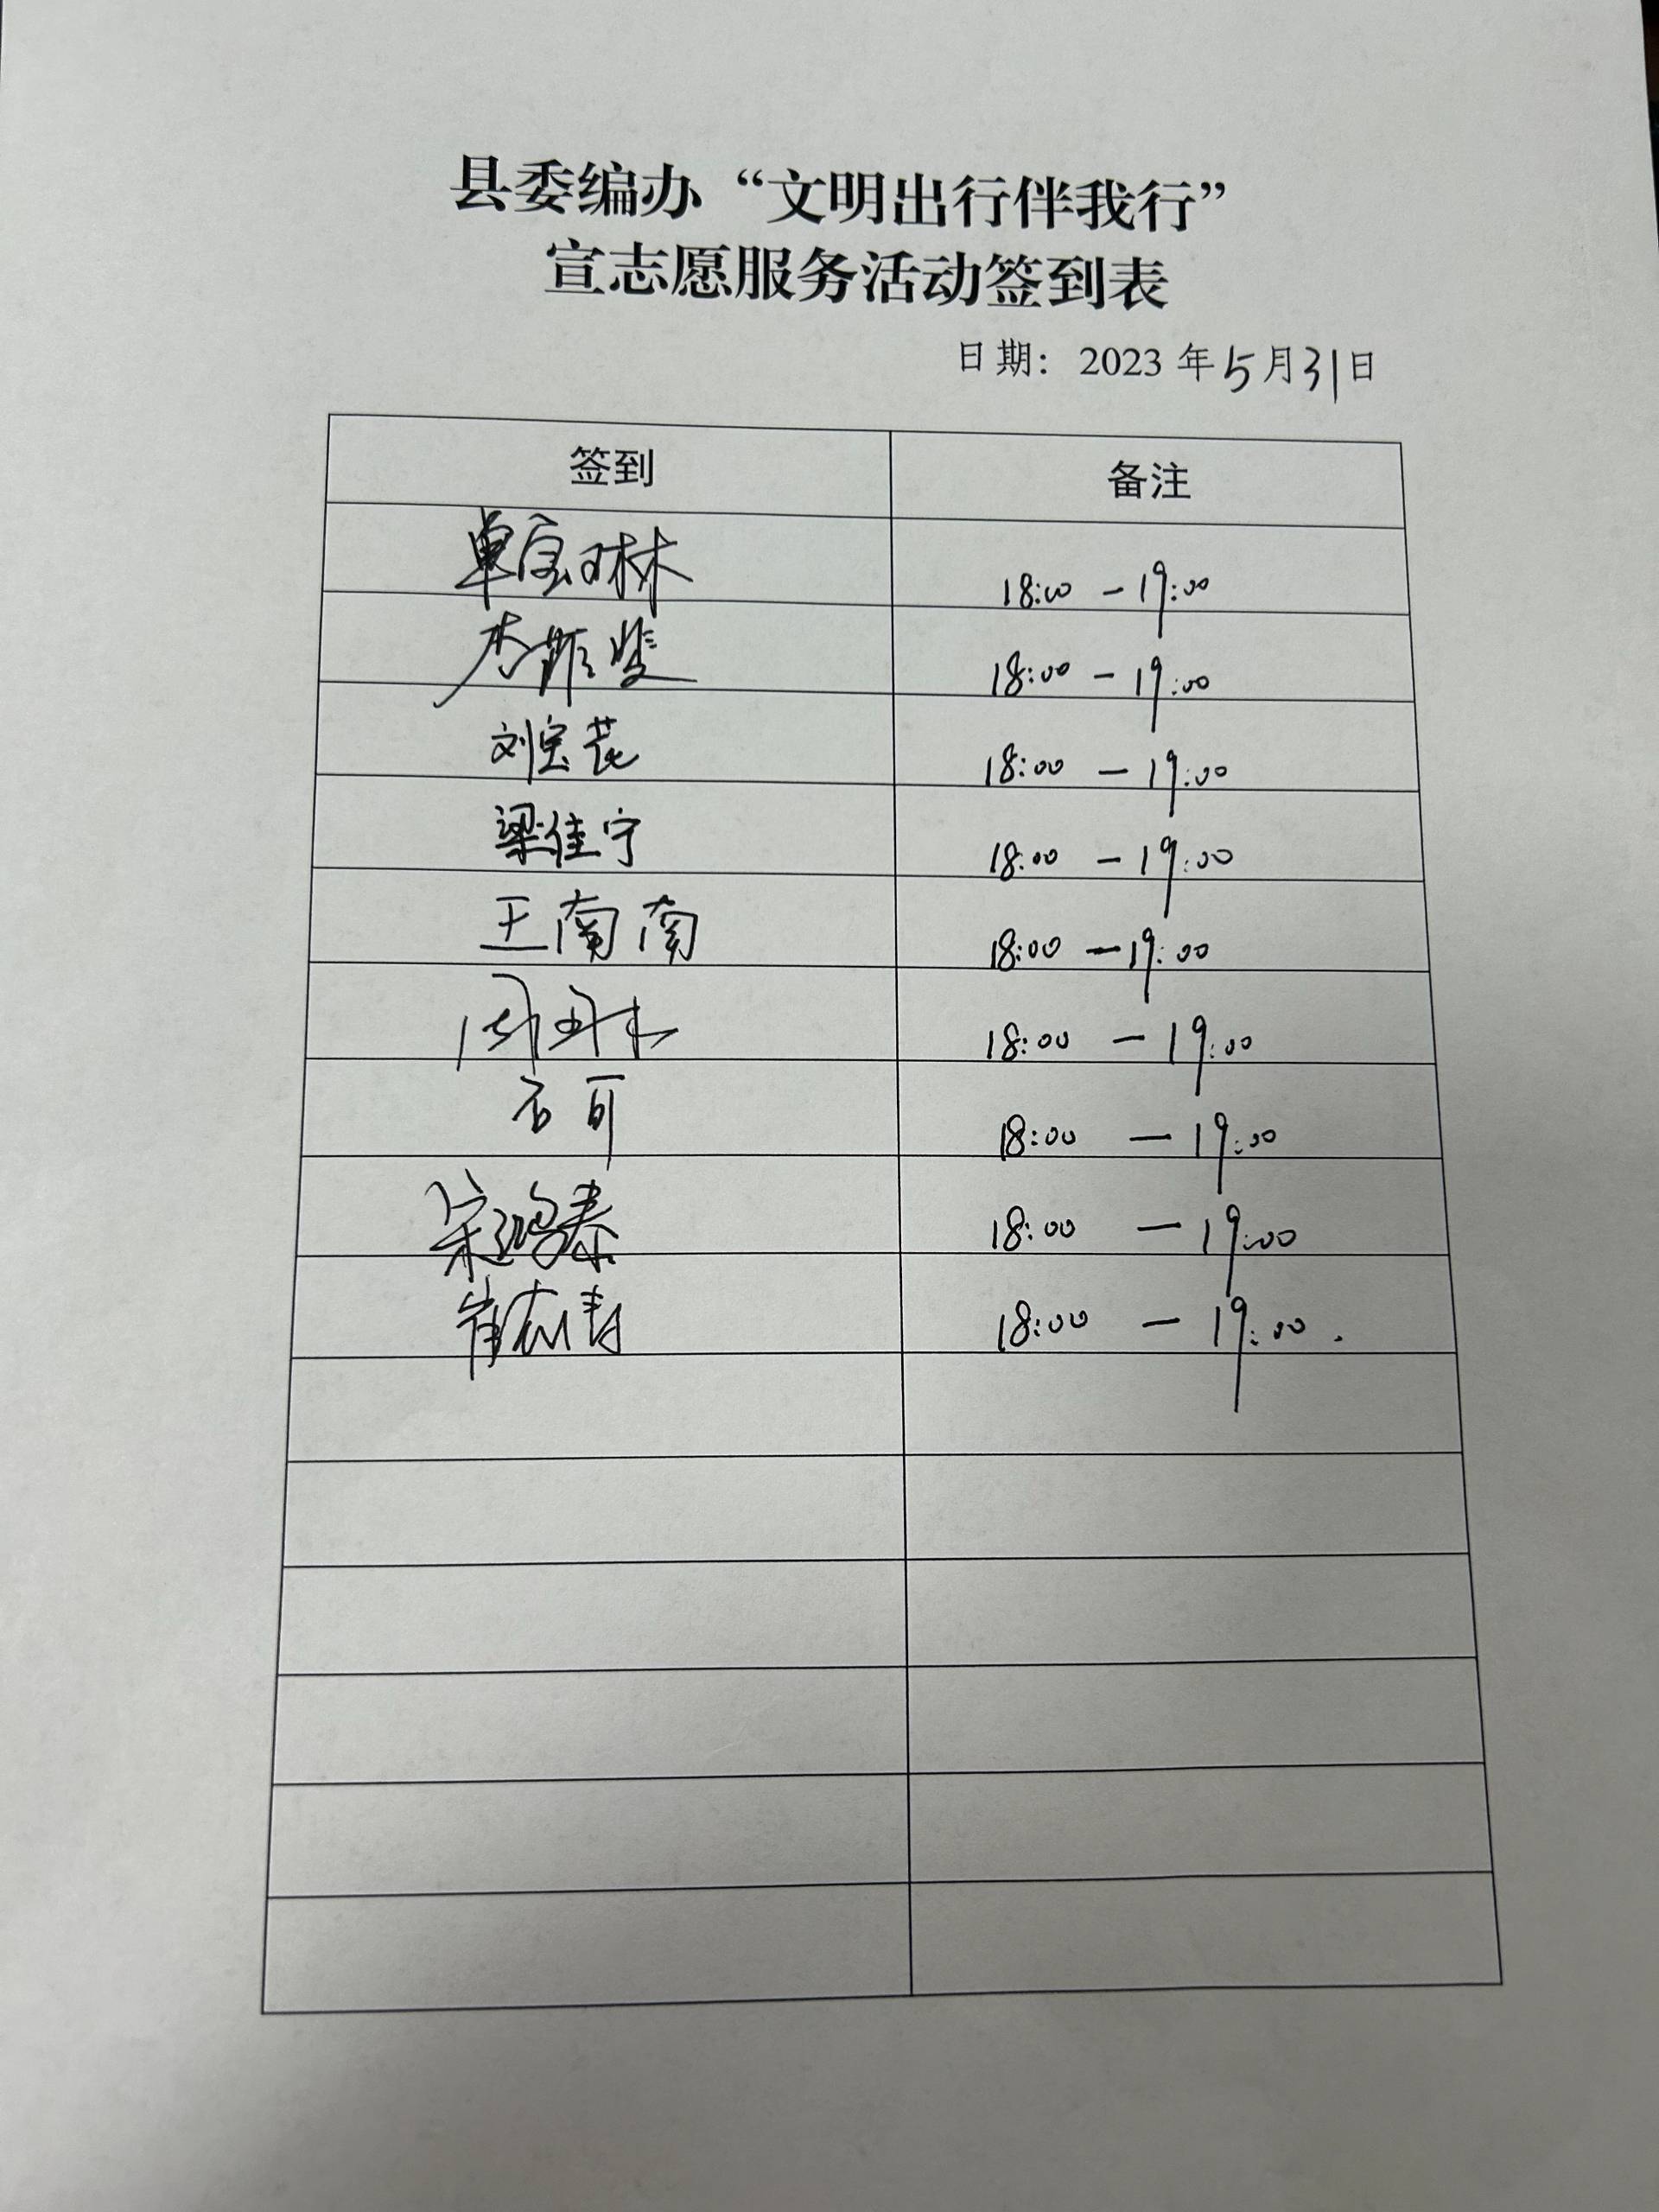 县委编办“文明出行伴我行”
宣志愿服务活动签到表
日期：2023年5月31日
签到 备注
卓宝琳 18:00 — 19:00
李 18:00 — 19:00
刘宝花 18:00 — 19:00
梁佳宁 18:00 — 19:00
王南南 18:00 — 19:00
周 18:00 — 19:00
石可 18:00 — 19:00
宋鸿泰 18:00 — 19:00
崔 18:00 — 19:00.